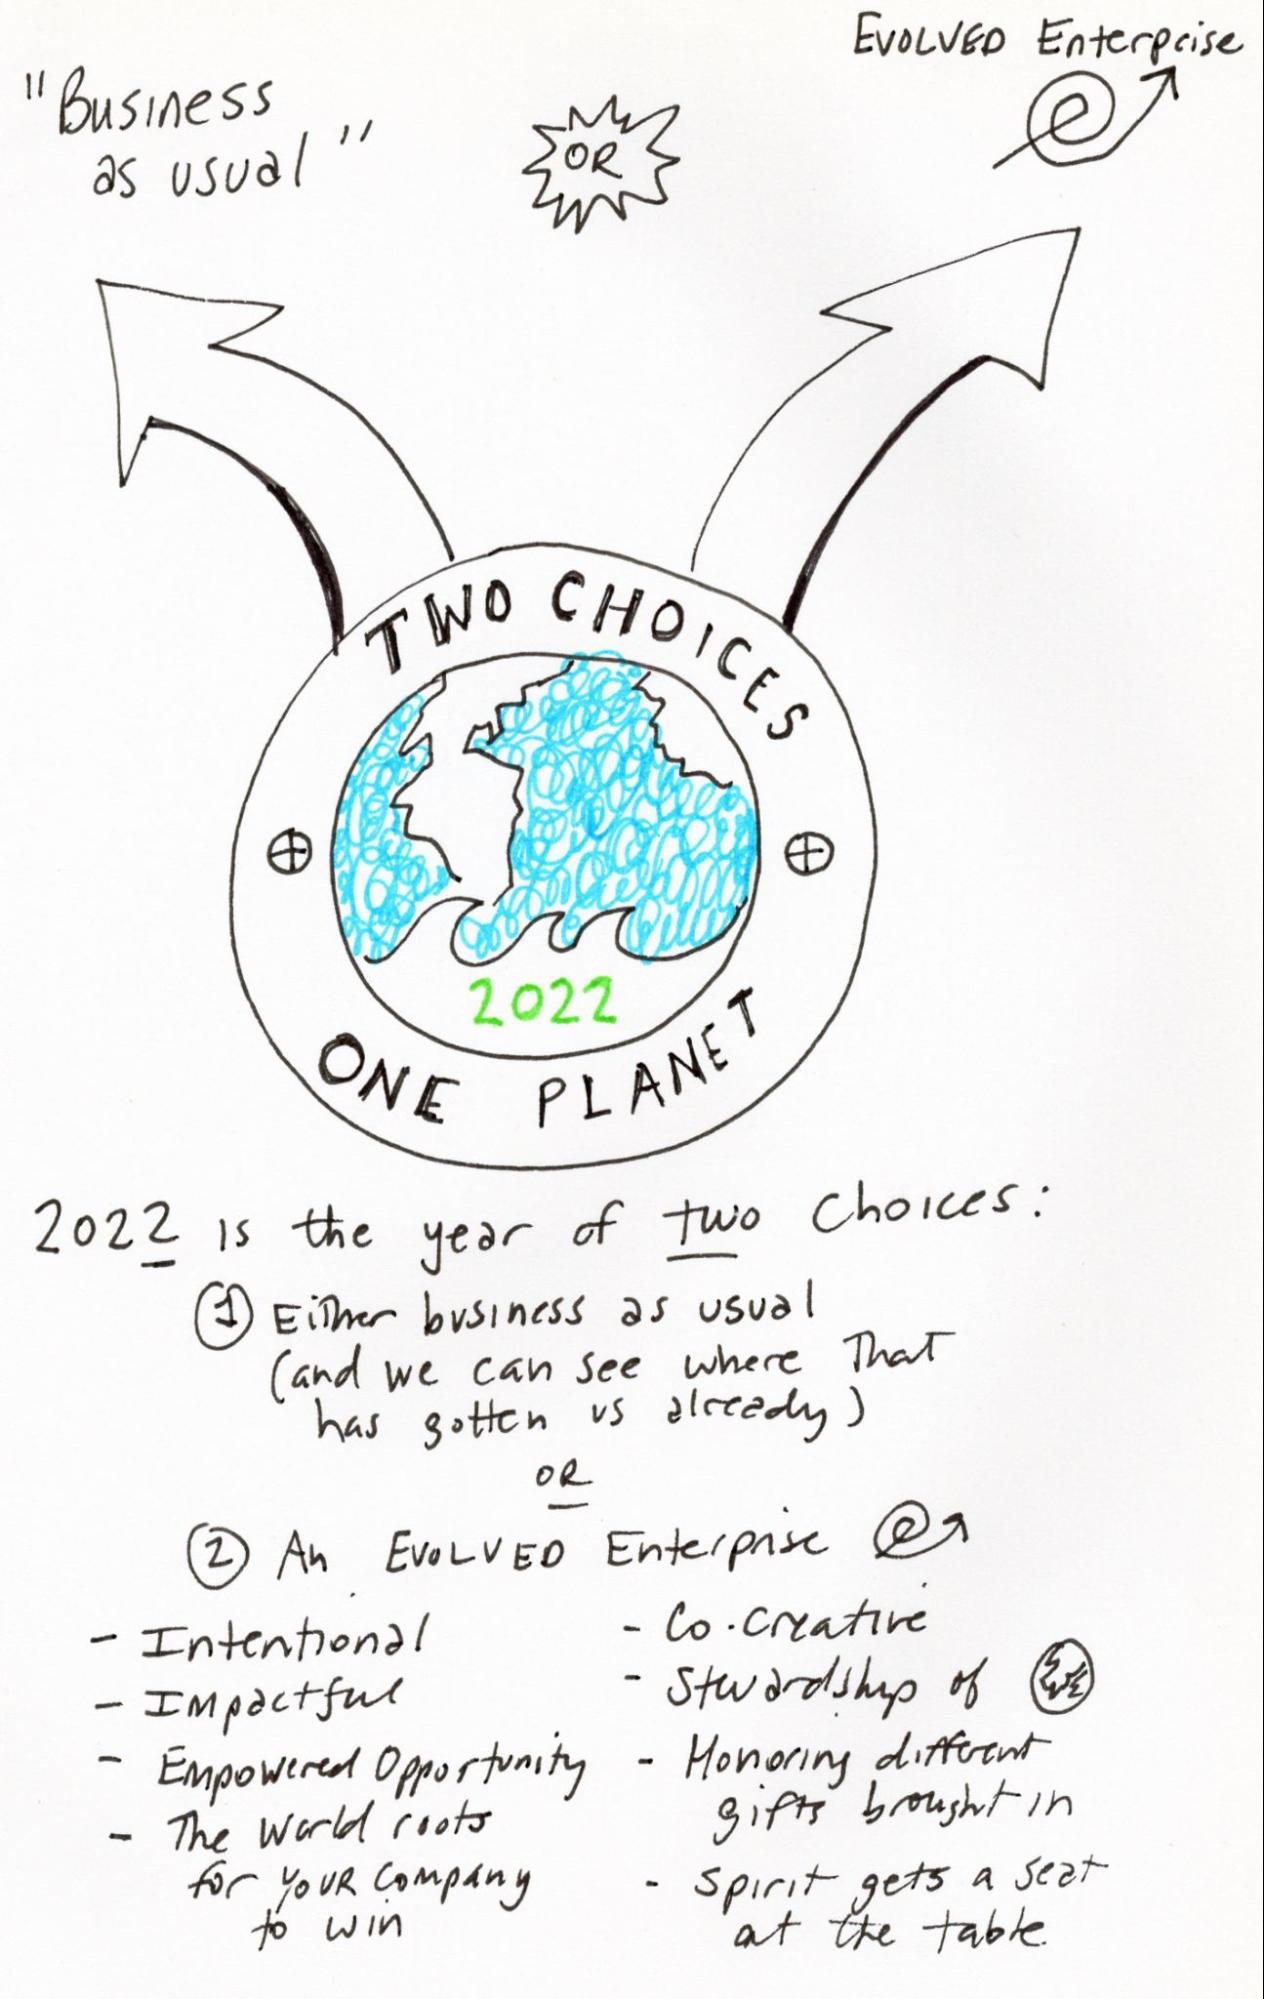 "Business
as usual"
OR
EVOLVED Enterprise
e
TWO CHOICES
2022
ONE PLANET
2022 is the year of two choices:
① Either business as usual
(and we can see where that
has gotten us already)
OR
② An EVOLVED Enterprise e
- Intentional
- Impactful
- Empowered Opportunity
- The World roots
for YOUR Company
to win
- Co-Creative
- Stewardship of
- Honoring different
gifts brought in
- Spirit gets a seat
at the table.